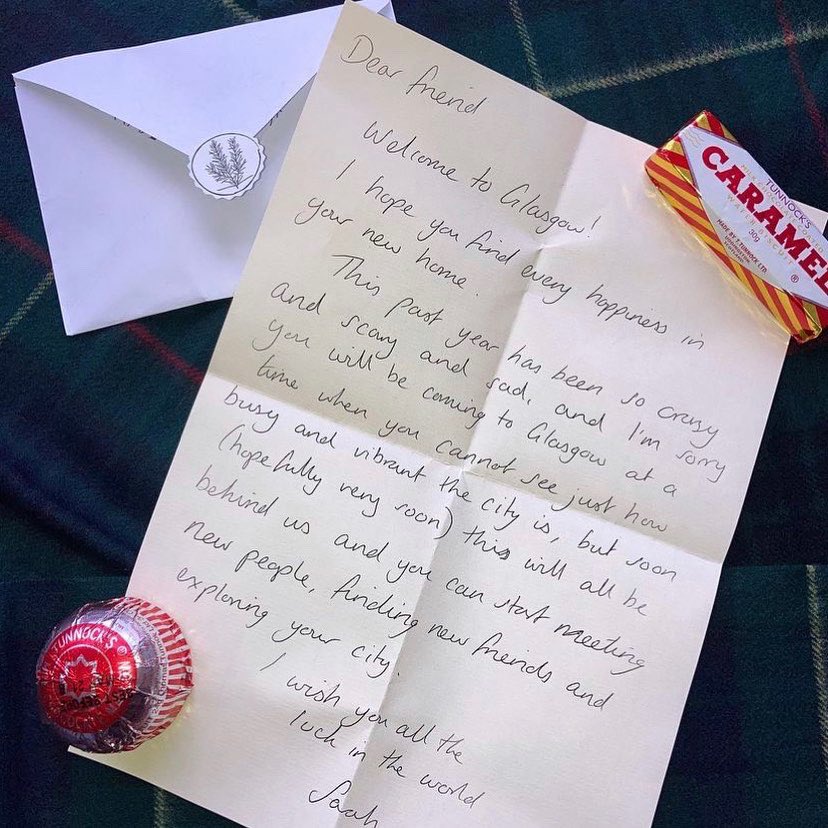 Dear friend
Welcome to Glasgow!
I hope you find every happiness in
your new home.
This past year has been so crazy
and scary and sad, and I'm sorry
you will be coming to Glasgow at a
time when you cannot see just how
busy and vibrant the city is, but soon
(hopefully very soon) this will all be
behind us and you can start meeting
new people, finding new friends and
exploring your city.
I wish you all the
luck in the world
TUNNOCK'S
MILK CHOCOLATE
CARAMEL
WAFER BISCUIT
30g
MADE BY T. TUNNOCK LTD.
®
TUNNOCK'S
®
BEST BEFORE